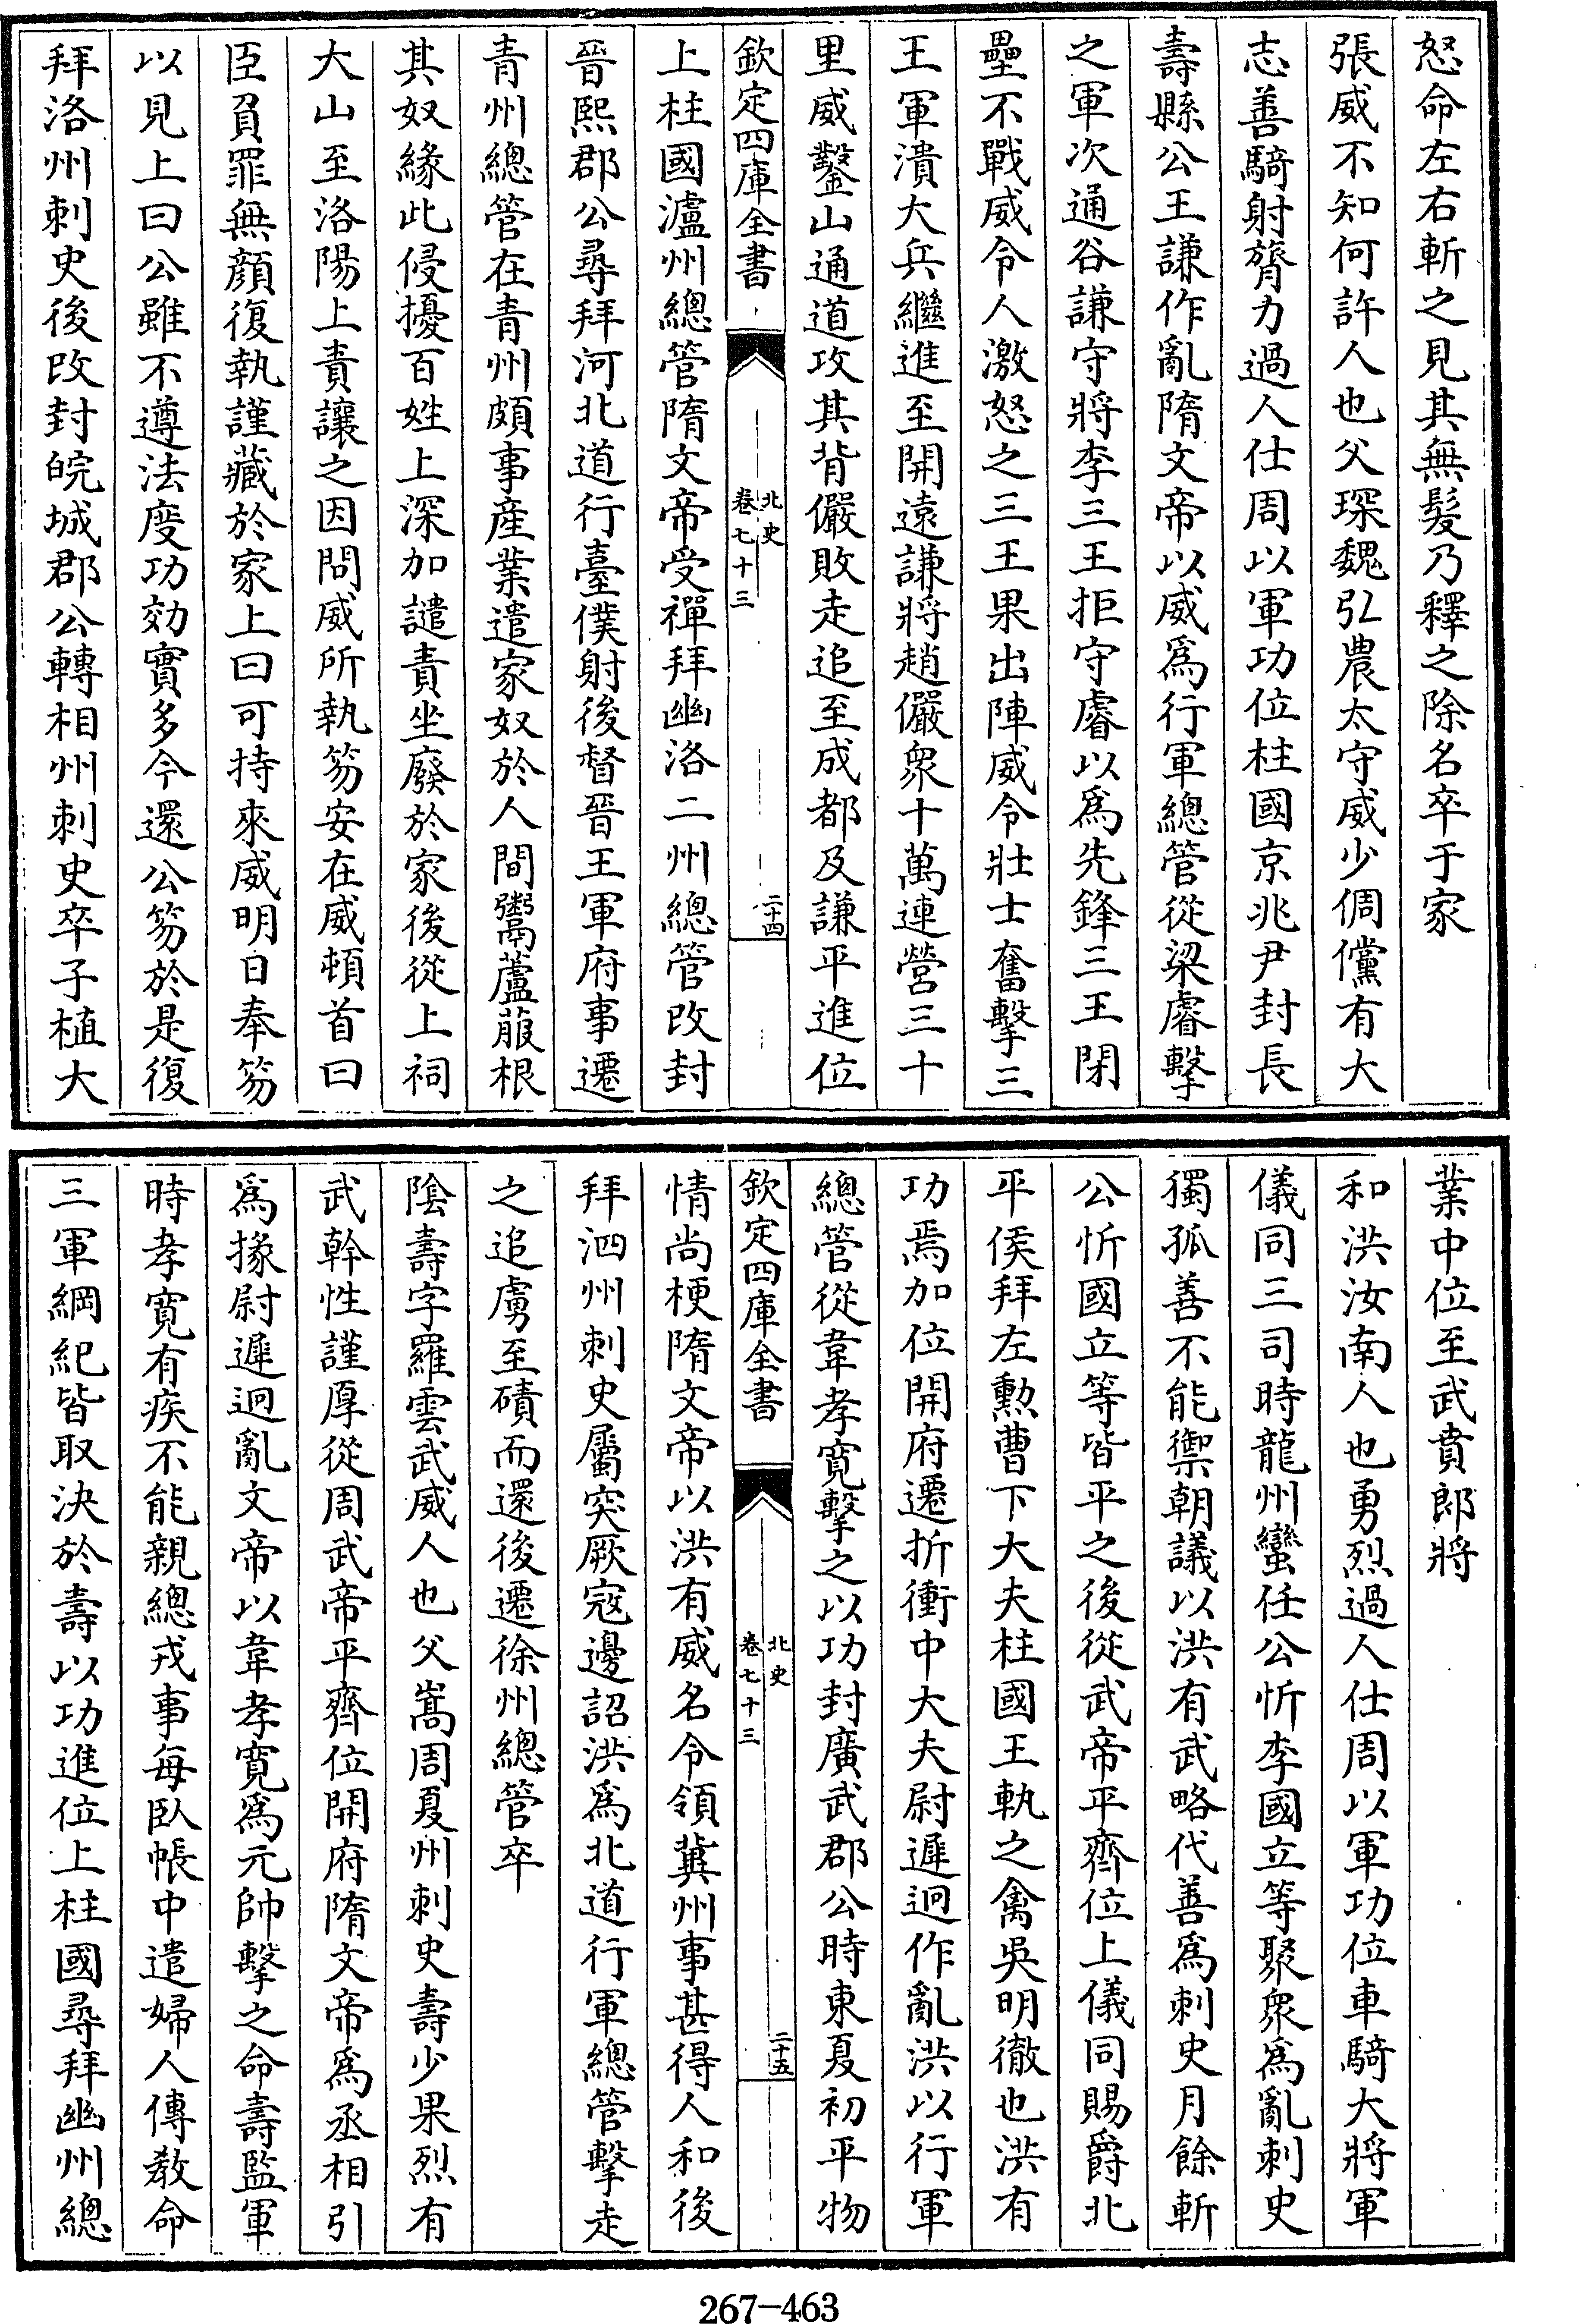 怒命左右斬之見其無髮乃釋之除名卒于家
張威不知何許人也父琛魏弘農太守威少倜儻有大
志善騎射膂力過人仕周以軍功位柱國京兆尹封長
壽縣公王謙作亂隋文帝以威爲行軍總管從梁睿擊
之軍次通谷謙守將李三王拒守睿以爲先鋒三王閉
壘不戰威令人激怒之三王果出陣威令壯士奮擊三
王軍潰大兵繼進至開遠謙將趙儼衆十萬連營三十
里威鑿山通道攻其背儼敗走追至成都及謙平進位
欽定四庫全書
北史
卷七十三
二十四
上柱國瀘州總管隋文帝受禪拜幽洛二州總管改封
晉熙郡公尋拜河北道行臺僕射後督晉王軍府事遷
青州總管在青州頗事產業遣家奴於人間鬻蘆菔根
其奴緣此侵擾百姓上深加譴責坐廢於家後從上祠
大山至洛陽上責讓之因問威所執笏安在威頓首曰
臣負罪無顔復執謹藏於家上曰可持來威明日奉笏
以見上曰公雖不遵法度功効實多今還公笏於是復
拜洛州刺史後改封皖城郡公轉相州刺史卒子植大
業中位至武賁郎將
和洪汝南人也勇烈過人仕周以軍功位車騎大將軍
儀同三司時龍州蠻任公忻李國立等聚衆爲亂刺史
獨孤善不能禦朝議以洪有武略代善爲刺史月餘斬
公忻國立等皆平之後從武帝平齊位上儀同賜爵北
平侯拜左勲曹下大夫柱國王軌之禽吳明徹也洪有
功焉加位開府遷折衝中大夫尉遲迥作亂洪以行軍
總管從韋孝寬擊之以功封廣武郡公時東夏初平物
欽定四庫全書
北史
卷七十三
二十五
情尚梗隋文帝以洪有威名令領冀州事甚得人和後
拜泗州刺史屬突厥寇邊詔洪爲北道行軍總管擊走
之追虜至磧而還後遷徐州總管卒
陰壽字羅雲武威人也父嵩周夏州刺史壽少果烈有
武幹性謹厚從周武帝平齊位開府隋文帝爲丞相引
爲掾尉遲迥亂文帝以韋孝寬爲元帥擊之命壽監軍
時孝寬有疾不能親總戎事每臥帳中遣婦人傳教命
三軍綱紀皆取決於壽以功進位上柱國尋拜幽州總
267-463